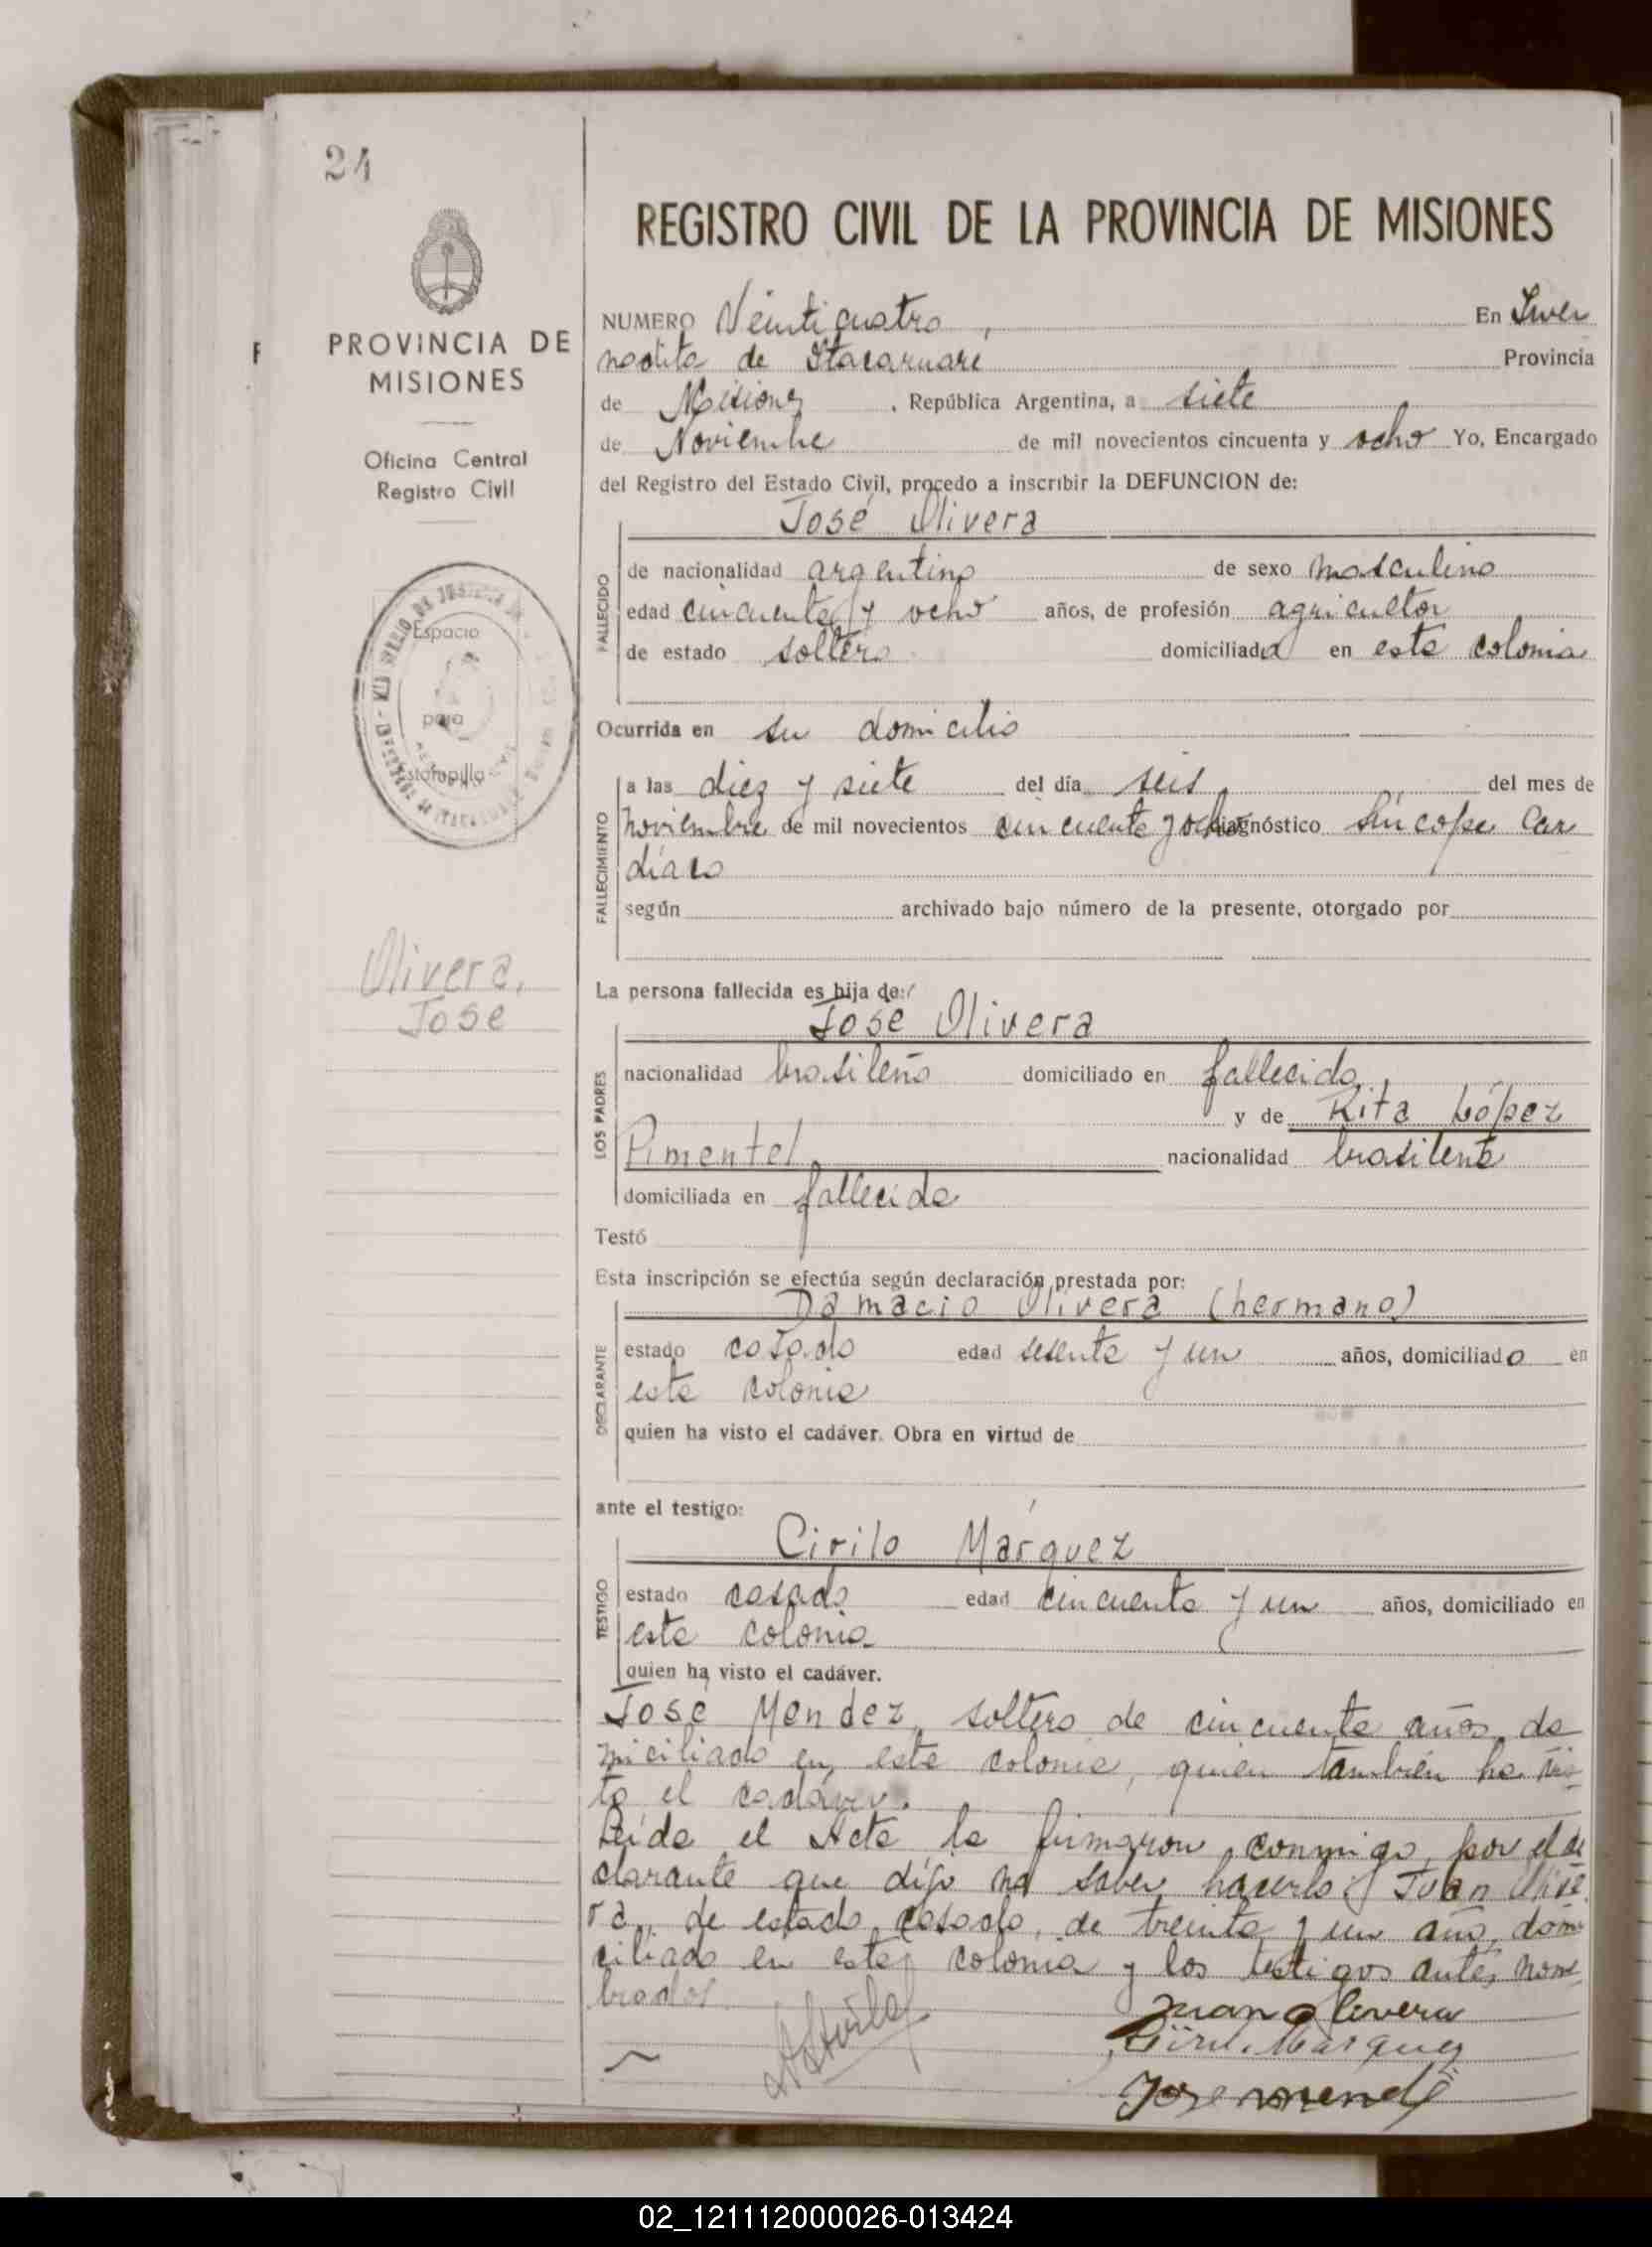 24
PROVINCIA DE
MISIONES
Oficina Central
Registro Civil
Espacio
para
Estampilla
Olivera,
José
REGISTRO CIVIL DE LA PROVINCIA DE MISIONES
NUMERO Veinticuatro, En Iver
nadita de Itacaruaré Provincia
de Misiones, República Argentina, a siete
de Noviembre de mil novecientos cincuenta y ocho Yo, Encargado
del Registro del Estado Civil, procedo a inscribir la DEFUNCION de:
José Olivera
FALLECIDO
de nacionalidad argentino de sexo masculino
edad cincuenta y ocho años, de profesión agricultor
de estado soltero domiciliado en esta colonia
Ocurrida en su domicilio
FALLECIMIENTO
a las diez y siete del día seis del mes de
noviembre de mil novecientos cincuenta y ocho diagnóstico Síncope Car
díaco
según archivado bajo número de la presente, otorgado por
La persona fallecida es hija de:
José Olivera
LOS PADRES
nacionalidad brasileño domiciliado en fallecido,
y de Rita López
Pimentel, nacionalidad brasileña
domiciliada en fallecida
Testó
Esta inscripción se efectúa según declaración prestada por:
Damacio Olivera (hermano)
DECLARANTE
estado casado edad sesenta y un años, domiciliado en
esta colonia
quien ha visto el cadáver. Obra en virtud de
ante el testigo:
Cirilo Márquez
TESTIGO
estado casado edad cincuenta y un años, domiciliado en
esta colonia
quien ha visto el cadáver.
José Mendez, soltero de cincuenta años, do
miciliado en esta colonia, quien también ha vis
to el cadáver.
Leída el Acta la firmaron conmigo, por el de
clarante que dijo no saber hacerlo Juan Olive
ra, de estado casado, de treinta y un año, domi
ciliado en esta colonia y los testigos antes nom
brados
Juan Olivera
Cirilo Marquez
Jose mendez
02_121112000026-013424